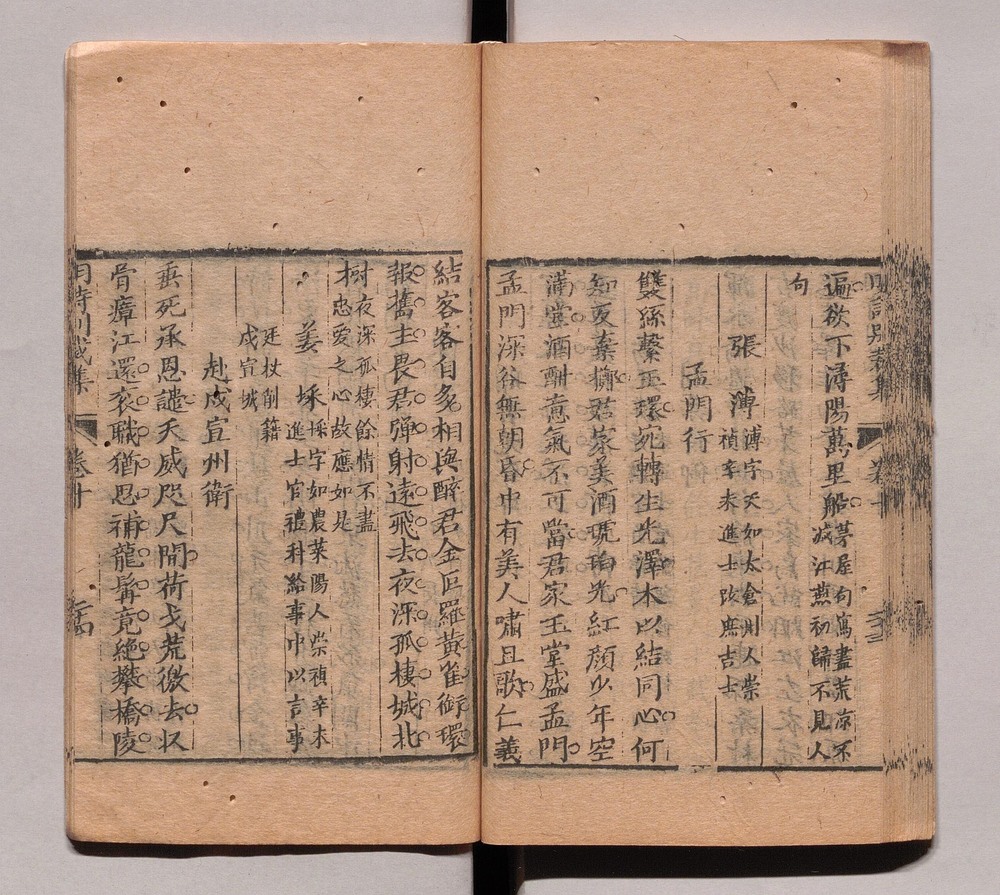 明詩別裁集
卷十
遍欲下潯陽萬里船茅屋句寫盡荒凉不
減江燕初歸不見人
句
張溥溥字天如太倉州人崇
禎辛未進士改庶吉士
孟門行
雙絲繫玉環宛轉生光澤木以結同心何
知反棄擲君家美酒琥珀光紅顏少年空
滿堂酒酣意氣不可當君家玉堂盛孟門
孟門深谷無朝昏中有美人嘯且歌仁義
結客客自多相與醉君金叵羅黃雀銜環
報舊主畏君彈射遠飛去夜深孤棲城北
樹夜深孤棲餘情不盡
才忠愛之心故應如是
姜埰埰字如農萊陽人崇禎辛未
進士官禮科給事中以言事
廷杖削籍
戍宣城
赴戍宣州衛
垂死承恩譴天威咫尺間荷戈荒徼去収
骨瘴江還衮職猶思補龍髯竟絕攀橋陵
明詩別裁集
卷十